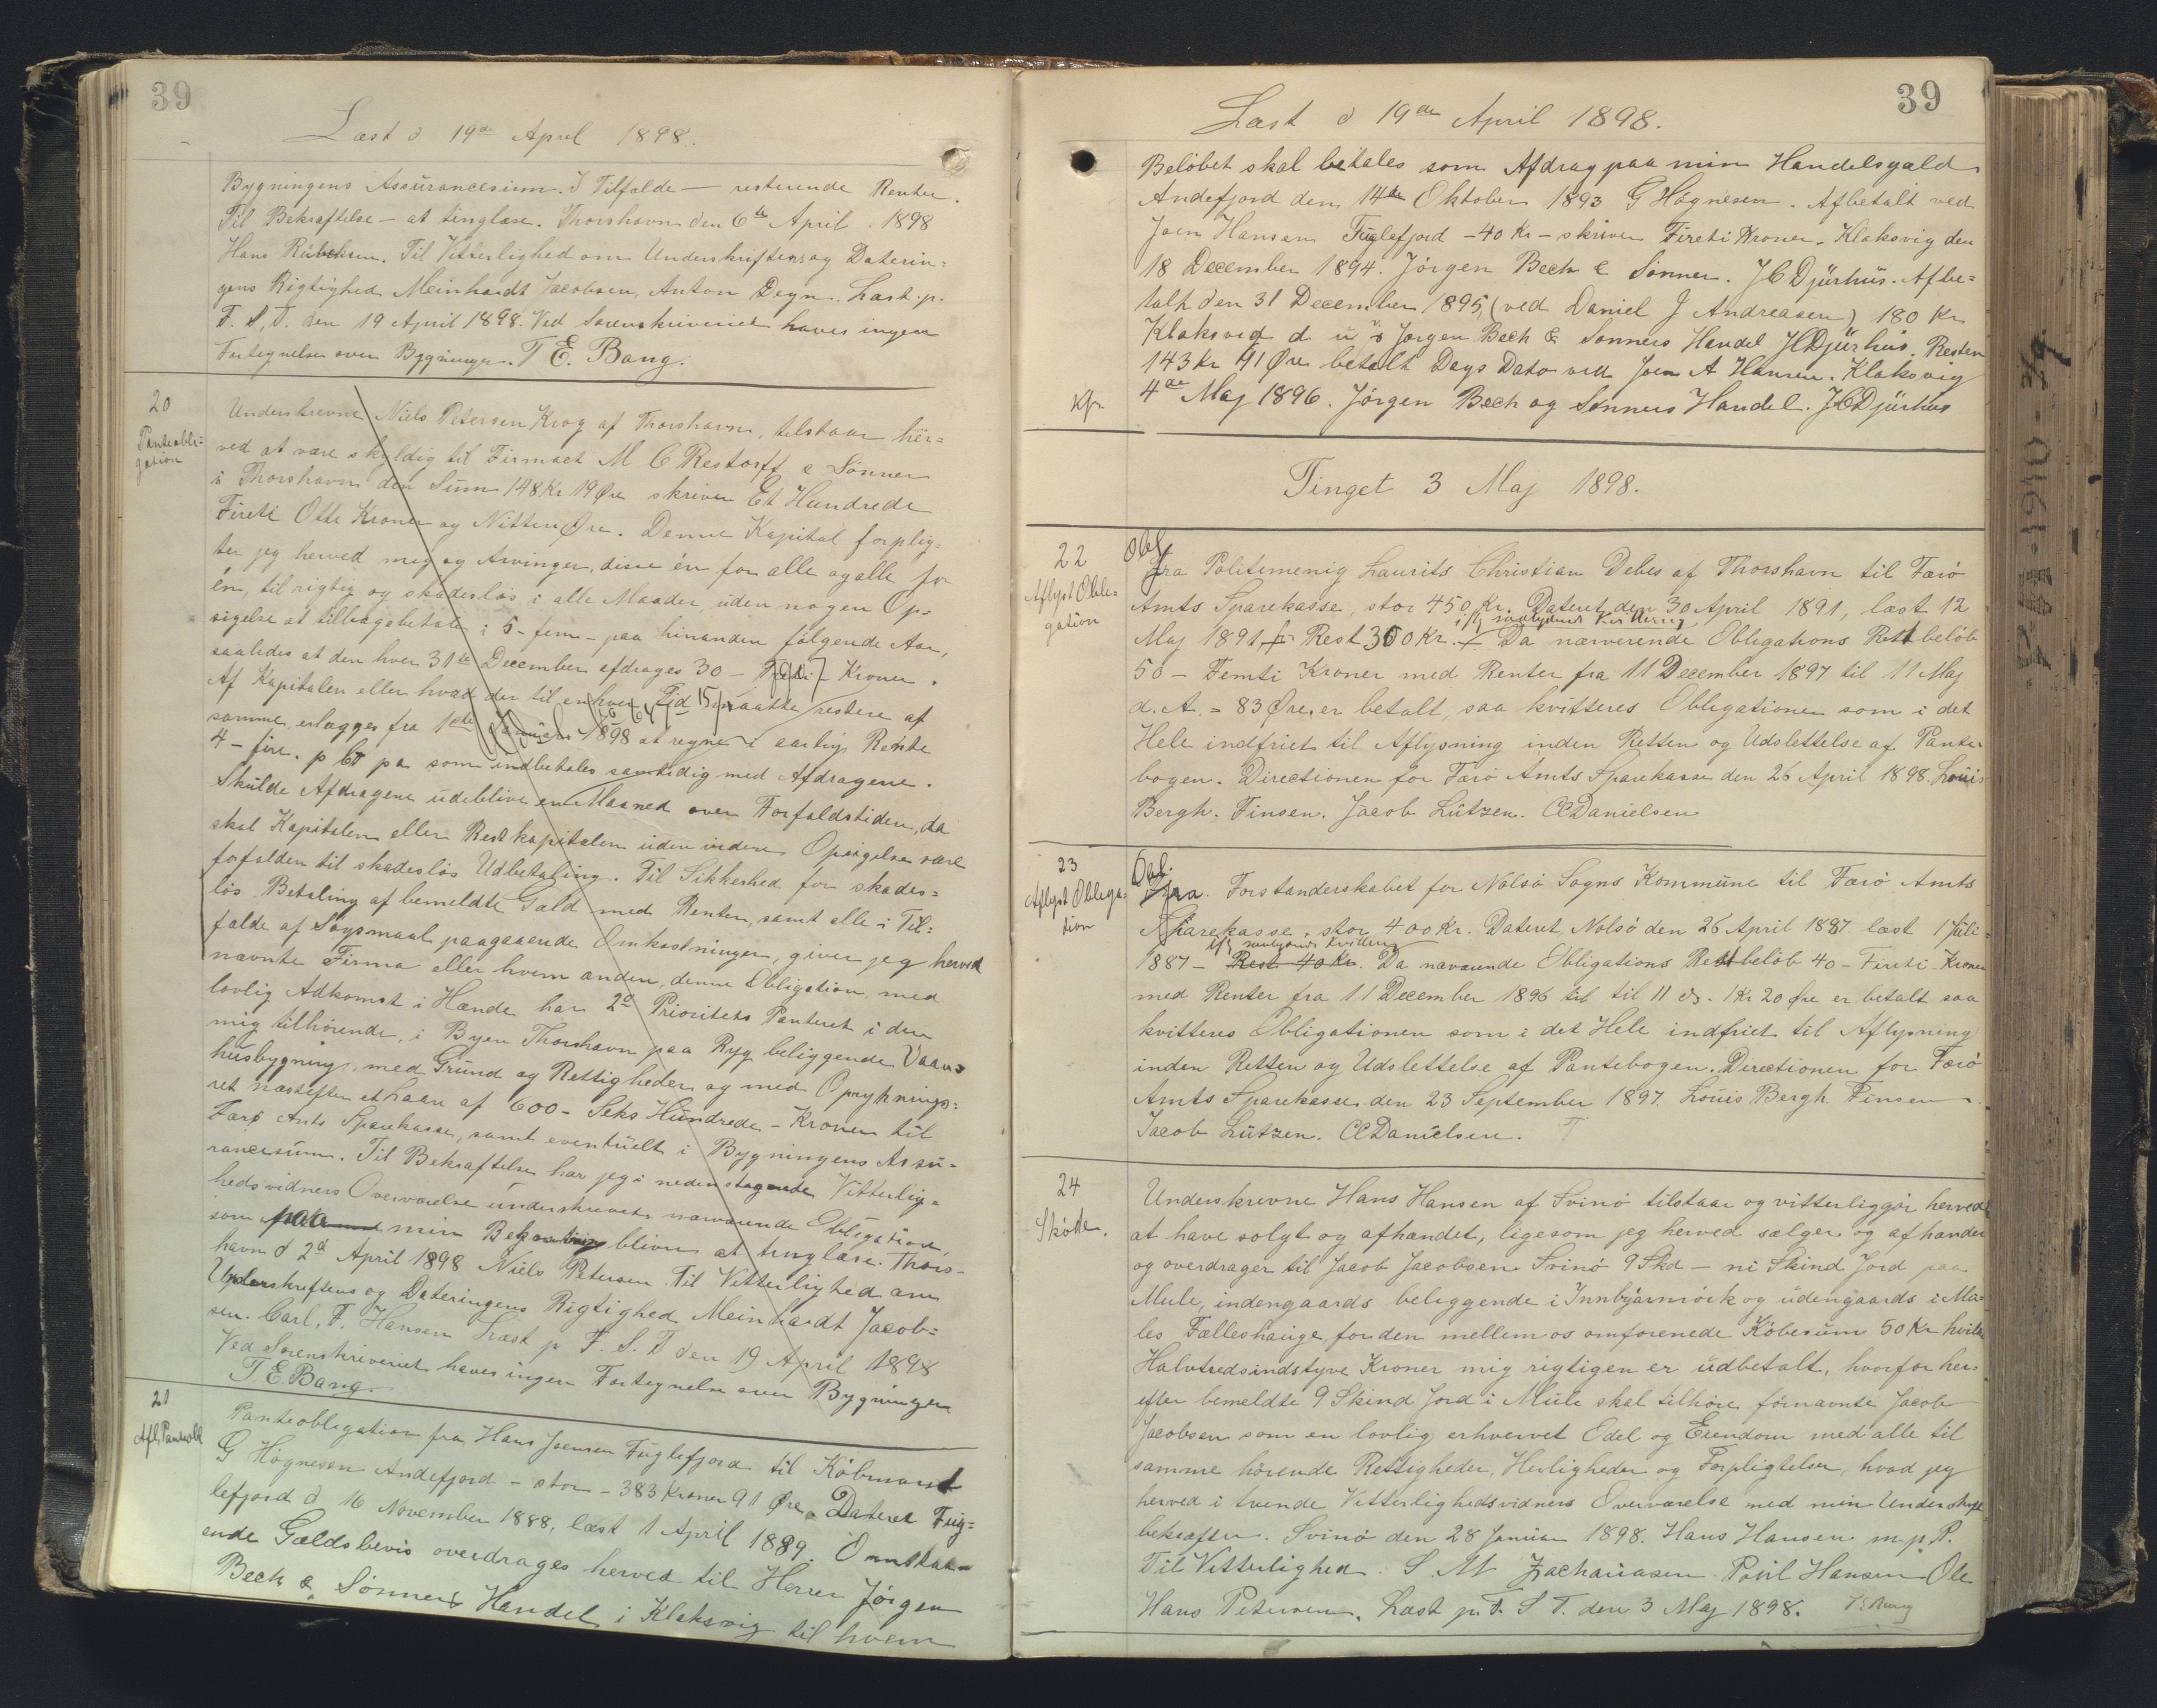 39
Læst d 19de April 1898.
Bygningens Assurancesum. I Tilfælde — resterende Renter.
Til Bekræftelse — at tinglæse. Thorshavn den 6te April 1898
Hans Rubeksen. Til Vitterlighed om Underskriftens og Daterin=
gens Rigtighed Meinhardt Jacobsen, Anton Degn. Læst p.
F. S. T. den 19 April 1898. Ved Sorenskriveriet haves ingen
Fortegnelse over Bygninger. T E. Bang.
20
Panteobli=
gation
Underskrevne Niels Petersen Krog af Thorshavn, tilstaar her=
ved at være skyldig til Firmaet M C Restorff & Sønner
i Thorshavn den Sum 148 Kr 19 Øre skriver Et Hundrede
Fireti Otte Kroner og Nitten Øre. Denne Kapital forplig=
ter jeg herved mig og Arvinger, disse én for alle og alle for
én, til rigtig og skadesløs i alle Maader, uden nogen Op=
sigelse at tilbagebetale i 5 - fem - paa hinanden følgende Aar,
saaledes at den hver 31te December afdrages 30 — Kroner.
Af Kapitalen eller hvad der til enhver Tid maatte restere af
samme, erlægges fra 1ste Januar 1898 at regne i aarlig Rente
4 - fire. p Ct pa som indbetales samtidig med Afdragene.
Skulde Afdragene udeblive en Maaned over Forfaldstiden, da
skal Kapitalen eller Restkapitalen uden videre Opsigelse være
forfalden til skadesløs Udbetaling. Til Sikkerhed for skades=
løs Betaling af bemeldte Gæld med Renter, samt alle i Til=
fælde af Søgsmaal paagaaende Omkostninger, giver jeg herved
nævnte Firma eller hvem anden, denne Obligation med
lovlig Adkomst i Hænde har 2d Prioritets Panteret i den
mig tilhørende, i Byen Thorshavn paa Ryg beliggende Vaan=
husbygning, med Grund og Rettigheder og med Oprykningsˍ
ret næstefter et Laan af 600 - Seks Hundrede - Kroner til
Færø Amts Sparekasse, samt eventuelt i Bygningens Assu=
rancesum. Til Bekræftelse har jeg i nedenstagende Vitterlig=
hedsvidners Overværelse underskrevet nærværende Obligation,
som paa min Bekostning bliver at tinglæse. Thors-
havn d 2d April 1898 Niels Petersen. Til Vitterlighed om
Underskriftens og Dateringens Rigtighed Meinhardt Jacob=
sen. Carl. F. Hansen Læst p F. S. T den 19 April 1898
Ved Sorenskriveriet haves ingen Fortegnelse over Bygninger
T. E. Bang.
21
Afl. Panteobl
Panteobligation fra Hans Joensen Fuglefjord til Købmand
G Høgnesen Andefjord - stor - 383 Kroner 91 Øre. Dateret Fug=
lefjord d 16 November 1888, læst 1 April 1889. Omstaa=
ende Gældsbevis overdrages herved til Herrer Jørgen
Bech & Sønners Handel i Klaksvig til hvem
39
Læst d 19de April 1898.
Beløbet skal betales som Afdrag paa min Handelsgæld
Andefjord den 14de Oktober 1893 G Høgnesen. Afbetalt ved
Joen Hansen Fuglefjord - 40 Kr - skriver Fireti Kroner. Klaksvig den
18 December 1894. Jørgen Bech & Sønner. J C Djurhus. Afbe=
talt den 31 December 1895, (ved Daniel J Andreasen) 180 Kr
Klaksvig d. u s Jørgen Bech & Sønners Handel JCDjurhus. Resten
143 Kr 91 Øre betalt Dags Dato ved Joen A Hansen. Klaksvig
4de Maj 1896. Jørgen Bech og Sønners Handel. JCDjurhus
Kfr
Tinget 3 Maj 1898.
22
Aflyst Obli=
gation
Obl.
fra Politimenig Laurits Christian Debes af Thorshavn til Færø
Amts Sparekasse, stor 450 Kr. Dateret den 30 April 1891, læst 12
iflg saalydende Kvittering
Maj 1891 Rest 350 Kr. Da nærværende Obligations Restbeløb
50 - Femti Kroner med Renter fra 11 December 1897 til 11 Maj
d. A. = 83 Øre, er betalt, saa kvitteres Obligationen som i det
Hele indfriet til Aflysning inden Retten og Udslettelse af Pante=
bogen. Directionen for Færø Amts Sparekasse den 26 April 1898. Louis
Bergh. Finsen. Jacob Lützen. CCDanielsen
23
Aflyst Obliga=
tion
Obl.
fra Forstanderskabet for Nolsø Sogns Kommune til Færø Amts
Sparekasse, stor 400 Kr. Dateret Nolsø den 26 April 1887 læst 1 Juli
iflg saalydende Kvittering
1887 - Rest 40 Kr. Da nærværende Obligations Restbeløb 40 - Fireti Kroner
med Renter fra 11 December 1896 til til 11 ds. 1 Kr 20 Øre er betalt saa
kvitteres Obligationen som i det Hele indfriet til Aflysning
inden Retten og Udslettelse af Pantebogen. Directionen for Færø
Amts Sparekasse den 23 September 1897. Louis Bergh. Finsen.
Jacob Lützen. CCDanielsen.
24
Skøde.
Underskrevne Hans Hansen af Svinø tilstaar og vitterliggør herved
at have solgt og afhændet, ligesom jeg herved sælger og afhænder
og overdrager til Jacob Jacobsen Svinø 9 Skd - ni Skind Jord paa
Mule, indengaards beliggende i Innbyjarmørk og udengaards i Mu=
les Fælleshauge, for den mellem os omforenede Købesum 50 Kr hvilke
Halvtredsindstyve Kroner mig rigtigen er udbetalt, hvorfor her=
efter bemeldte 9 Skind Jord i Mule skal tilhøre førnævnte Jacob
Jacobsen som en lovlig erhvervet Odel og Eiendom med alle til
samme hørende Rettigheder, Herligheder og Forpligtelser, hvad jeg
herved i tvende Vitterlighedsvidners Overværelse med min Underskrift
bekræfter. Svinø den 28 Januar 1898. Hans Hansen m. p. P.
Til Vitterlighed. S. M Zachariasen Poul Hansen Ole
Hans Petersen. Læst p. F. S T. den 3 Maj 1898. TEBang